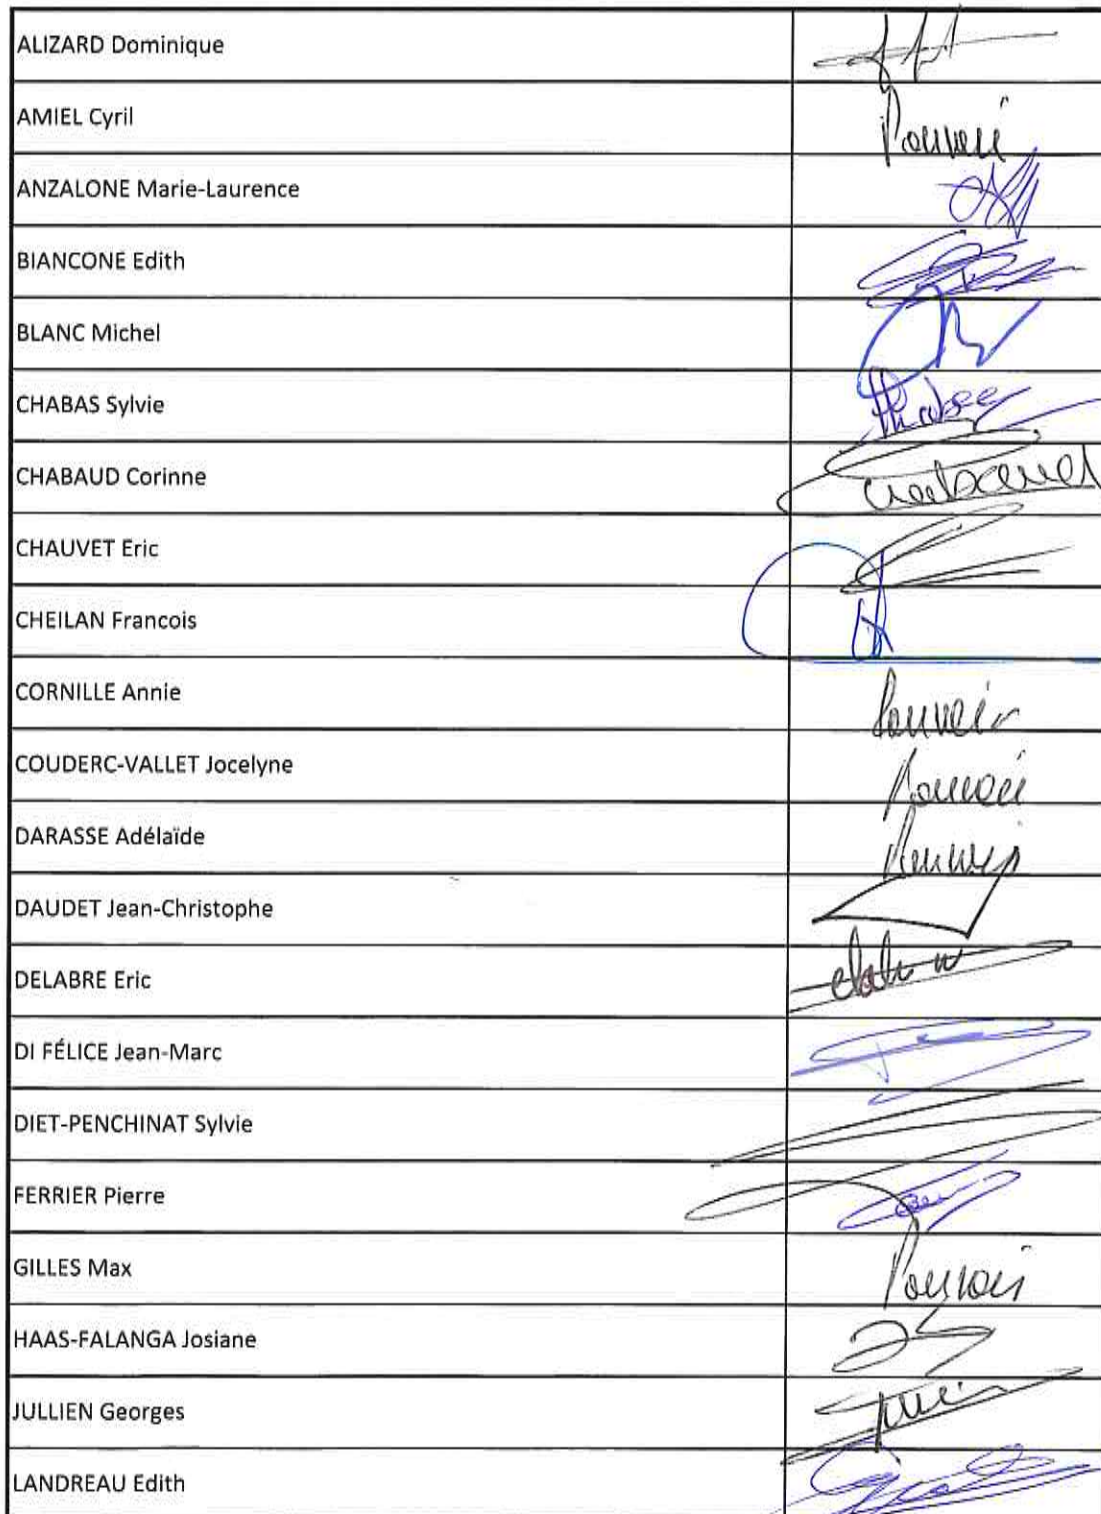 ALIZARD Dominique
AMIEL Cyril Pouvoir
ANZALONE Marie-Laurence
BIANCONE Edith
BLANC Michel
CHABAS Sylvie
CHABAUD Corinne
CHAUVET Eric
CHEILAN Francois
CORNILLE Annie Pouvoir
COUDERC-VALLET Jocelyne Pouvoir
DARASSE Adélaïde Pouvoir
DAUDET Jean-Christophe
DELABRE Eric
DI FÉLICE Jean-Marc
DIET-PENCHINAT Sylvie
FERRIER Pierre
GILLES Max Pouvoir
HAAS-FALANGA Josiane
JULLIEN Georges
LANDREAU Edith